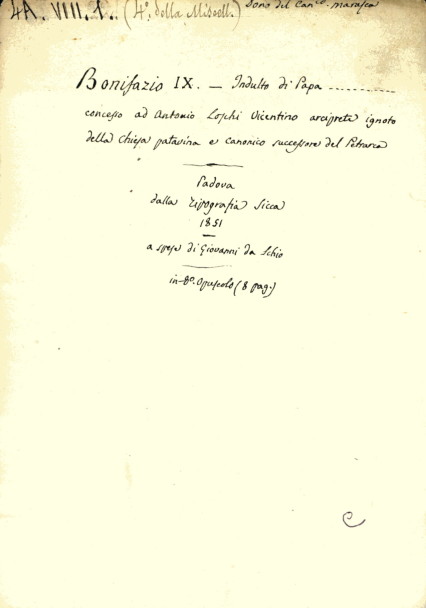 4A. VIII. 1. (4°. della Miscell.) Dono del Can.co Marasca
Bonifazio IX. — Indulto di Papa ...........
concesso ad Antonio Loschi Vicentino arciprete ignoto
della chiesa patavina e canonico successore del Petrarca
Padova
dalla Tipografia Sicca
1851
a spese di Giovanni da Schio
in-8°. Opuscolo (8 pag.)
C